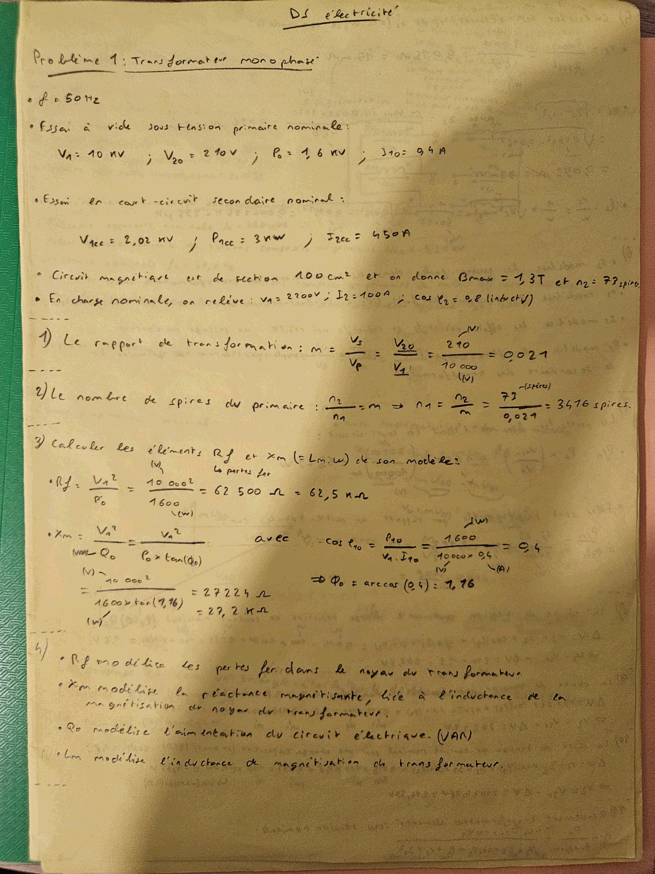 DS électricité
Problème 1 : Transformateur monophasé
• f = 50 Hz
• Essai à vide sous tension primaire nominale :
V1 = 10 KV ; V20 = 210V ; P0 = 1,6 KV ; I10 = 0,4 A
• Essai en court-circuit secondaire nominal :
V1cc = 2,02 KV ; P1cc = 3 KW ; I2cc = 450A
• Circuit magnétique est de section 100 cm² et on donne Bmax = 1,3T et n2 = 73 spires
• En charge nominale, on relève : V1 = 2200V ; I2 = 100A ; cos φ2 = 0,8 (inductif)
1) Le rapport de transformation : m = Vs/Vp = V20/V1 = 210 (V)/10 000 (V) = 0,021
2) Le nombre de spires du primaire : n2/n1 = m ⇒ n1 = n2/m = 73 (spires)/0,021 = 3476 spires.
3) Calculer les éléments Rf et Xm (= Lm.ω) de son modèle :
↳ pertes fer
• Rf = V1²/P0 = 10 000² (V)/1600 (W) = 62 500 Ω = 62,5 KΩ
• Xm = V1²/Q0 (VAR) = V1²/P0 × tan(φ0) avec cos φ10 = P10/V1 . I10 = 1600 (W)/10000 × 0,4 (V) (A) = 0,4
= 10 000² (V)/1600 × tan(1,16) (W) = 27224 Ω ⇒ φ0 = arccos (0,4) = 1,16
= 27,2 KΩ
4)
• Rf modélise les pertes fer dans le noyau du transformateur
• Xm modélise la réactance magnétisante, liée à l'inductance de la
magnétisation du noyau du transformateur.
• Q0 modélise l'aimentation du circuit électrique. (VAR)
• Lm modélise l'inductance de magnétisation du transformateur.